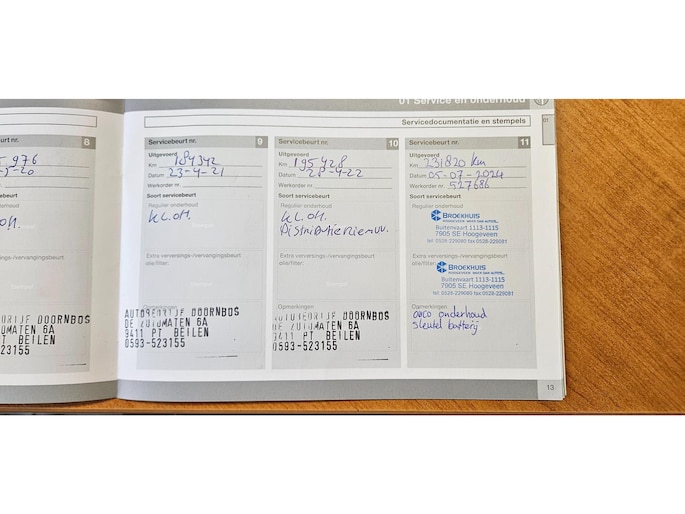 01 Service en onderhoud
Servicedocumentatie en stempels
01
8
976
Servicebeurt nr. 9
Uitgevoerd
Km 184342
Datum 23-4-21
Werkorder nr.
Soort servicebeurt
Regulier onderhoud
KL.OH.
Extra verversings-/vervangingsbeurt
olie/filter:
AUTOBEDRIJF DOORNBOS
DE ZUIDMATEN 6A
9411 PT BEILEN
0593-523155
Servicebeurt nr. 10
Uitgevoerd
Km 195428
Datum 28-4-22
Werkorder nr.
Soort servicebeurt
Regulier onderhoud
KL.OH.
Extra verversings-/vervangingsbeurt
olie/filter:
Opmerkingen
AUTOBEDRIJF DOORNBOS
DE ZUIDMATEN 6A
9411 PT BEILEN
0593-523155
Servicebeurt nr. 11
Uitgevoerd
Km 231820 km
Datum 05-07-2024
Werkorder nr. 527686
Soort servicebeurt
Regulier onderhoud
BROEKHUIS
Buitenvaart 1113-1115
7905 SE Hoogeveen
tel: 0528-229080 fax:0528-229081
Extra verversings-/vervangingsbeurt
olie/filter:
BROEKHUIS
Buitenvaart 1113-1115
7905 SE Hoogeveen
tel: 0528-229080 fax:0528-229081
Opmerkingen
onderhoud
sleutel batterij
13